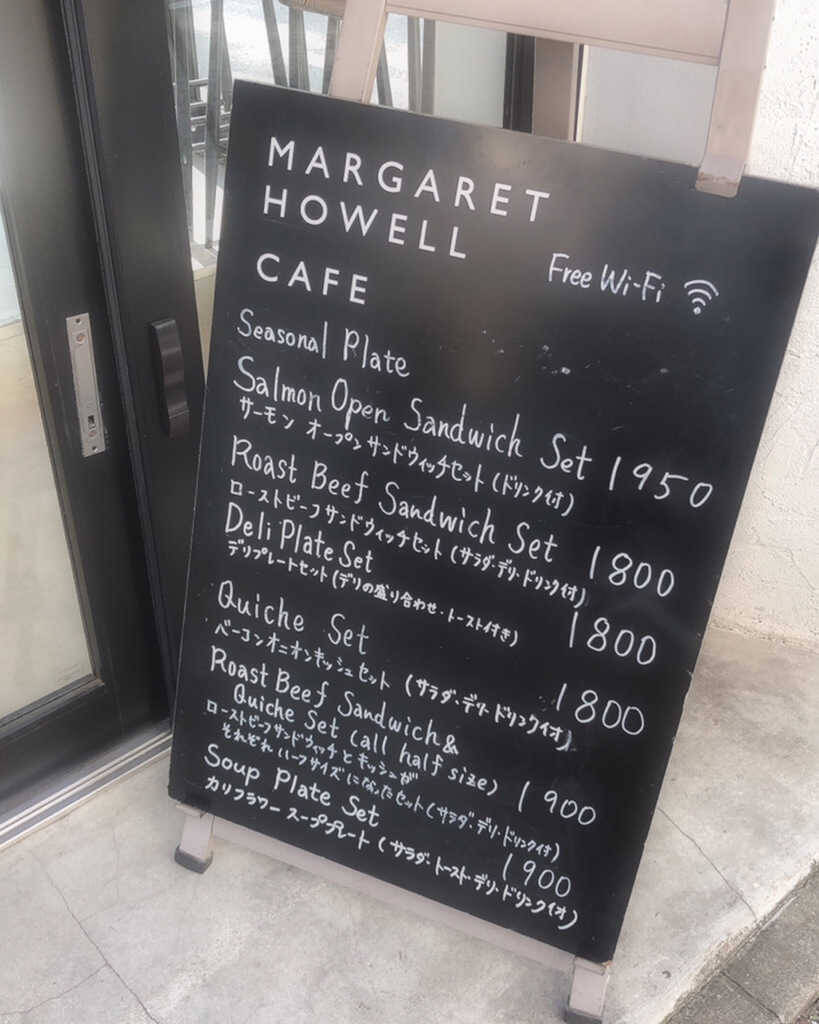 MARGARET
HOWELL
CAFE
Free Wi-Fi
Seasonal Plate
Salmon Open Sandwich Set 1950
サーモン オープンサンドウィッチセット(ドリンク付)
Roast Beef Sandwich Set 1800
ローストビーフサンドウィッチセット(サラダ・デリ・ドリンク付)
Deli Plate Set 1800
デリプレートセット(デリの盛り合わせ・トースト付き)
Quiche Set 1800
ベーコンオニオンキッシュセット(サラダ・デリ・ドリンク付)
Roast Beef Sandwich &
Quiche Set (all half size) 1900
ローストビーフサンドウィッチとキッシュが
それぞれハーフサイズになったセット(サラダ・デリ・ドリンク付)
Soup Plate Set 1900
カリフラワー スーププレート(サラダ・トースト・デリ・ドリンク付)